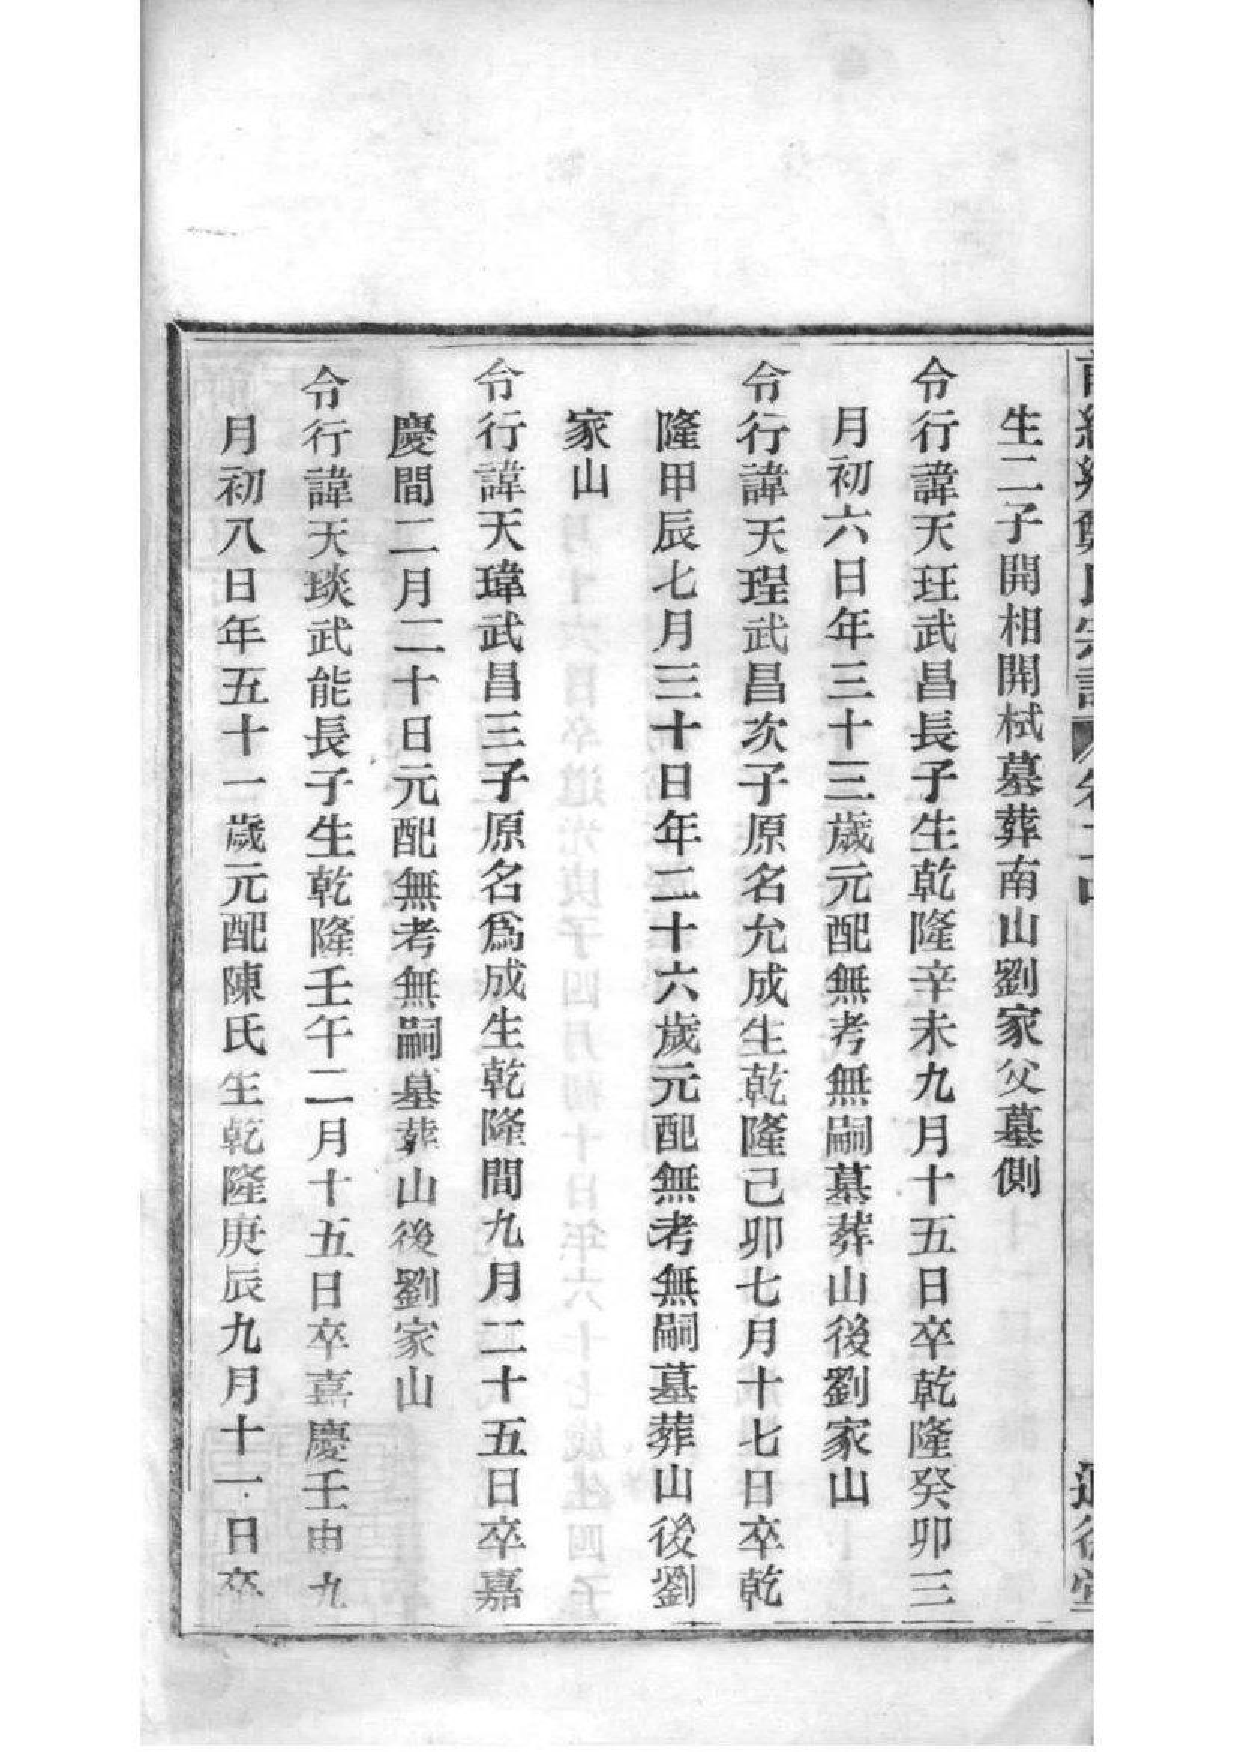 生二子開相開栻墓葬南山劉家父墓側
令行諱天玨武昌長子生乾隆辛未九月十五日卒乾隆癸卯三
月初六日年三十三歲元配無考無嗣墓葬山後劉家山
令行諱天珵武昌次子原名允成生乾隆己卯七月十七日卒乾
隆甲辰七月三十日年二十六歲元配無考無嗣墓葬山後劉
家山
令行諱天瑋武昌三子原名爲成生乾隆間九月二十五日卒嘉
慶間二月二十日元配無考無嗣墓葬山後劉家山
令行諱天琰武能長子生乾隆壬午二月十五日卒嘉慶壬申九
月初八日年五十一歲元配陳氏生乾隆庚辰九月十一日卒